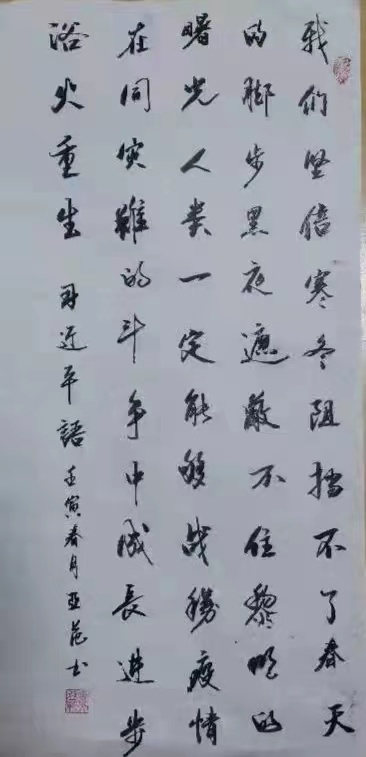 我们坚信寒冬阻挡不了春天
的脚步黑夜遮蔽不住黎明的
曙光人类一定能够战胜疫情
在同灾难的斗争中成长进步
浴火重生
习近平语 壬寅春月亚范书